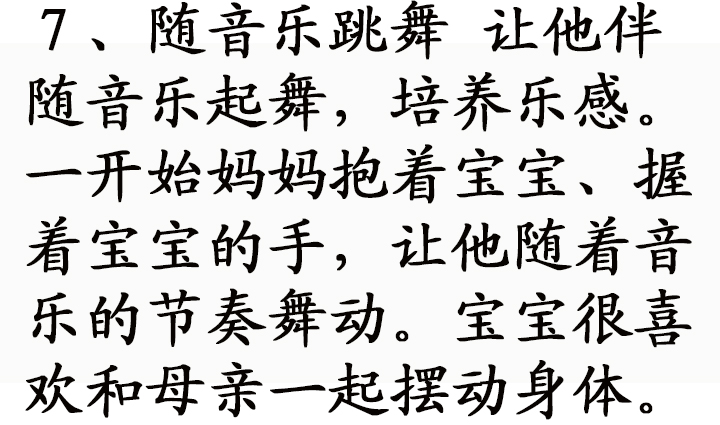 7、随音乐跳舞 让他伴
随音乐起舞，培养乐感。
一开始妈妈抱着宝宝、握
着宝宝的手，让他随着音
乐的节奏舞动。宝宝很喜
欢和母亲一起摆动身体。